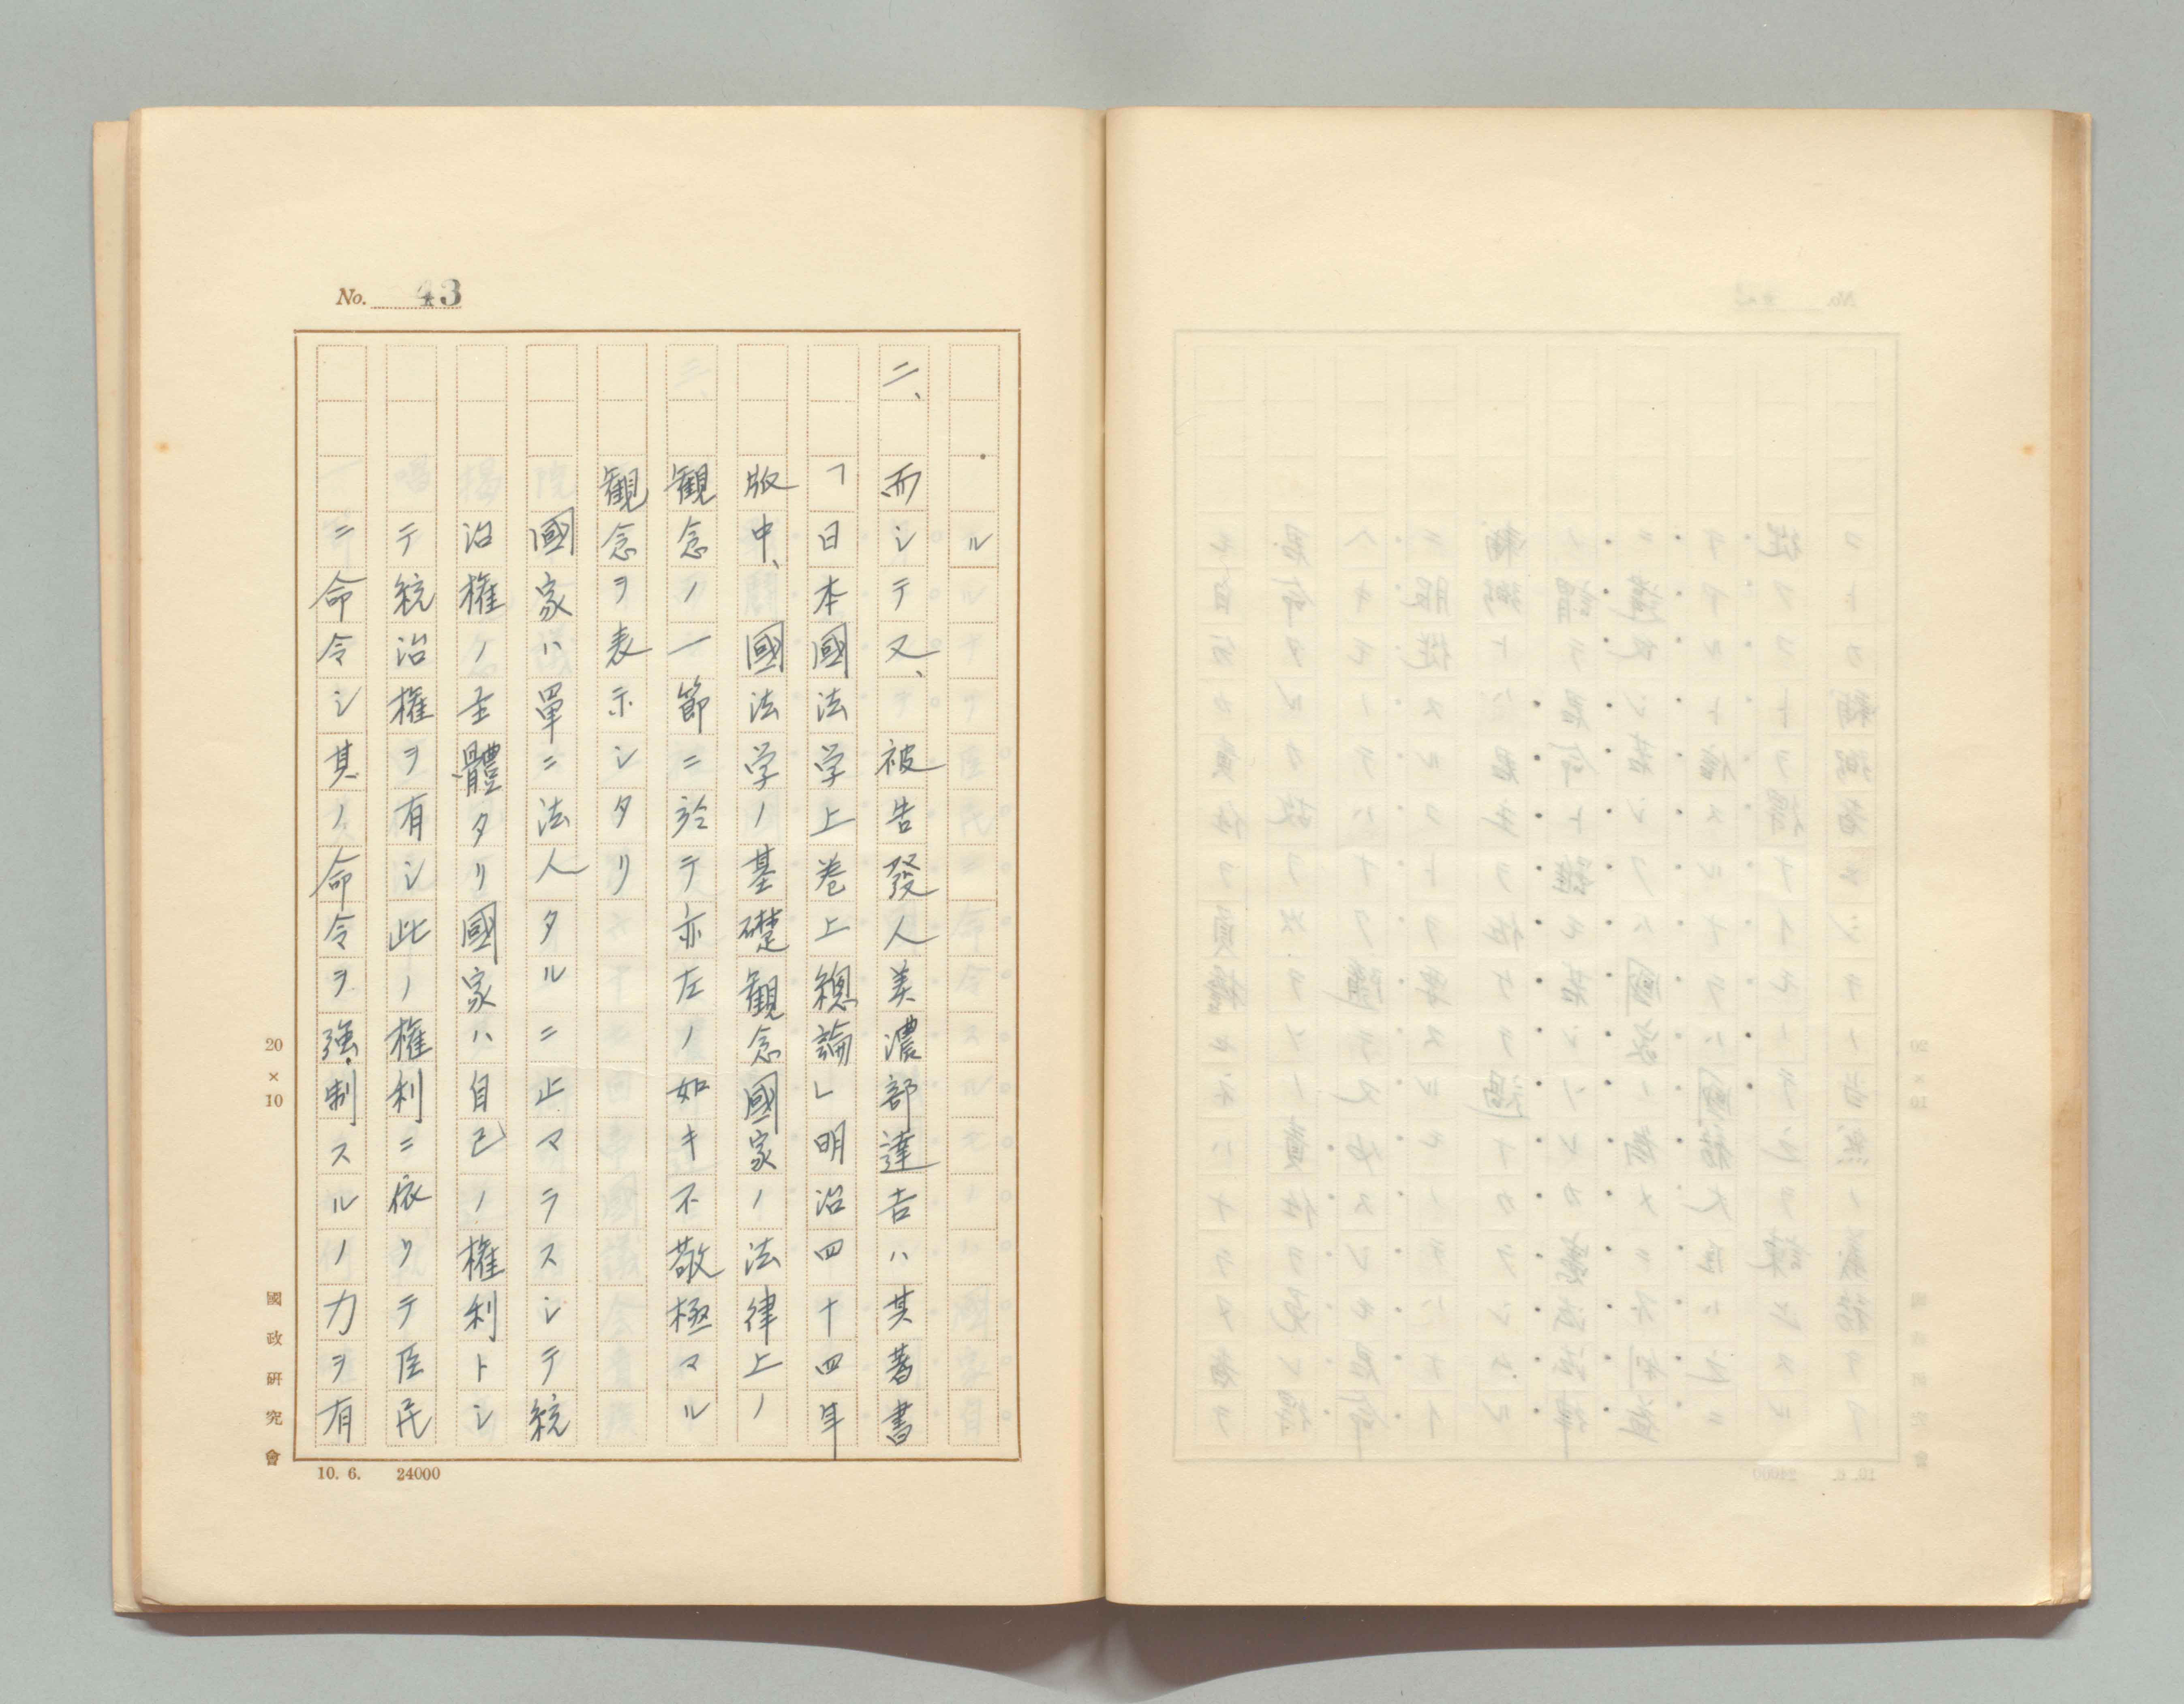 No. 43
ル
二、而シテ又、被告發人美濃部達吉ハ其著書
「日本國法学上卷上總論」明治四十四年
版中、國法学ノ基礎観念國家ノ法律上ノ
観念ノ一節ニ於テ亦左ノ如キ不敬極マル
観念ヲ表示シタリ
國家ハ單ニ法人タルニ止マラスシテ統
治權ノ主體タリ國家ハ自己ノ權利トシ
テ統治權ヲ有シ此ノ權利ニ依リテ臣民
ニ命令シ其ノ命令ヲ強制スルノ力ヲ有
20×10
國政研究會
10. 6. 24000